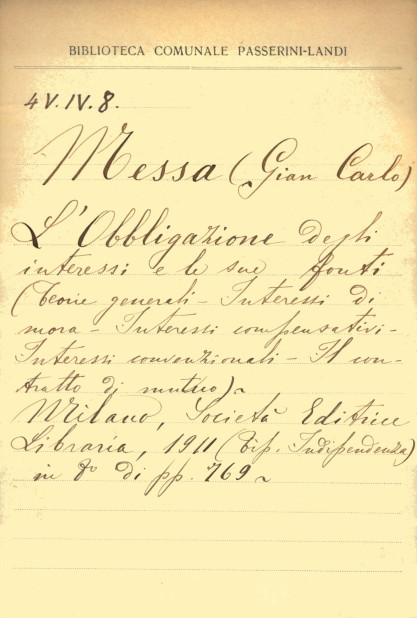 BIBLIOTECA COMUNALE PASSERINI-LANDI
4V.IV.8.
Messa (Gian Carlo)
L'Obbligazione degli
interessi e le sue fonti
(Teorie generali - Interessi di
mora - Interessi compensativi -
Interessi convenzionali - Il con-
tratto di mutuo) ~
Milano, Società Editrice
Libraria, 1911 (Tip. Indipendenza)
in 8º di pp. 769 ~